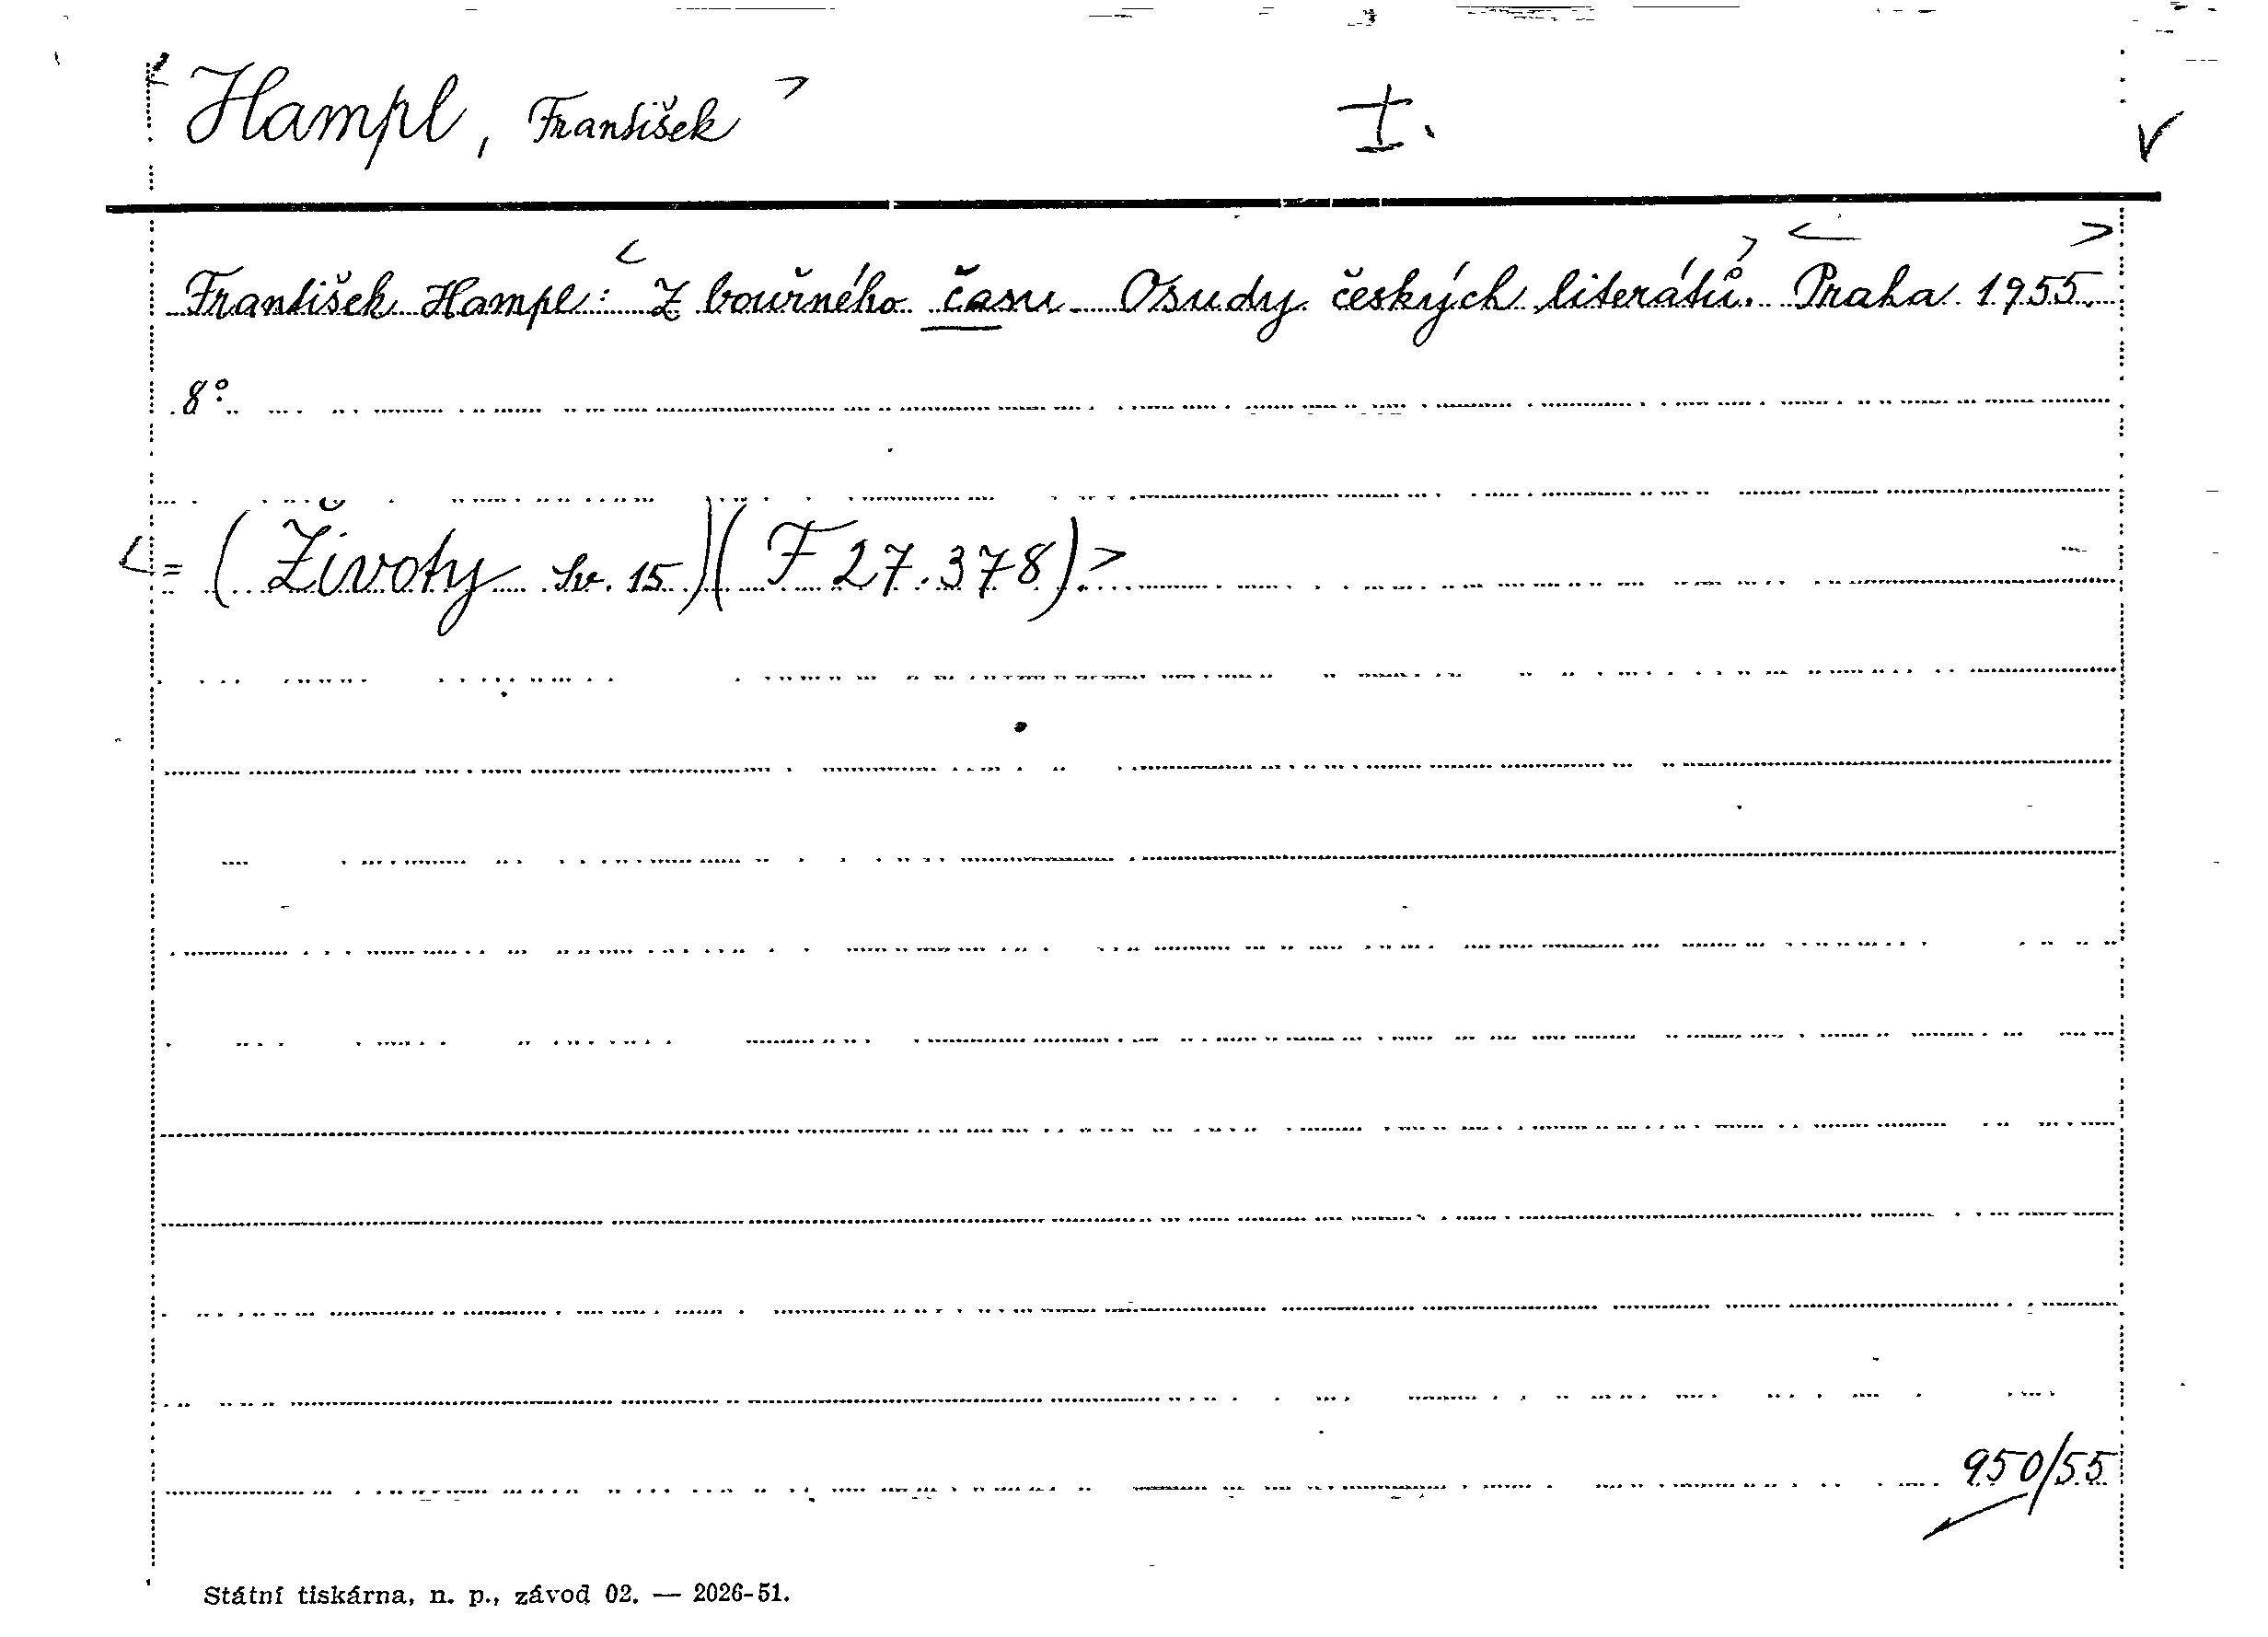 Hampl, František I.
František Hampl: Z bouřného času. Osudy českých literátů. Praha 1955.
8°.
= (Životy sv. 15) (F 27.378)
950/55
Státní tiskárna, n. p., závod 02. — 2026-51.